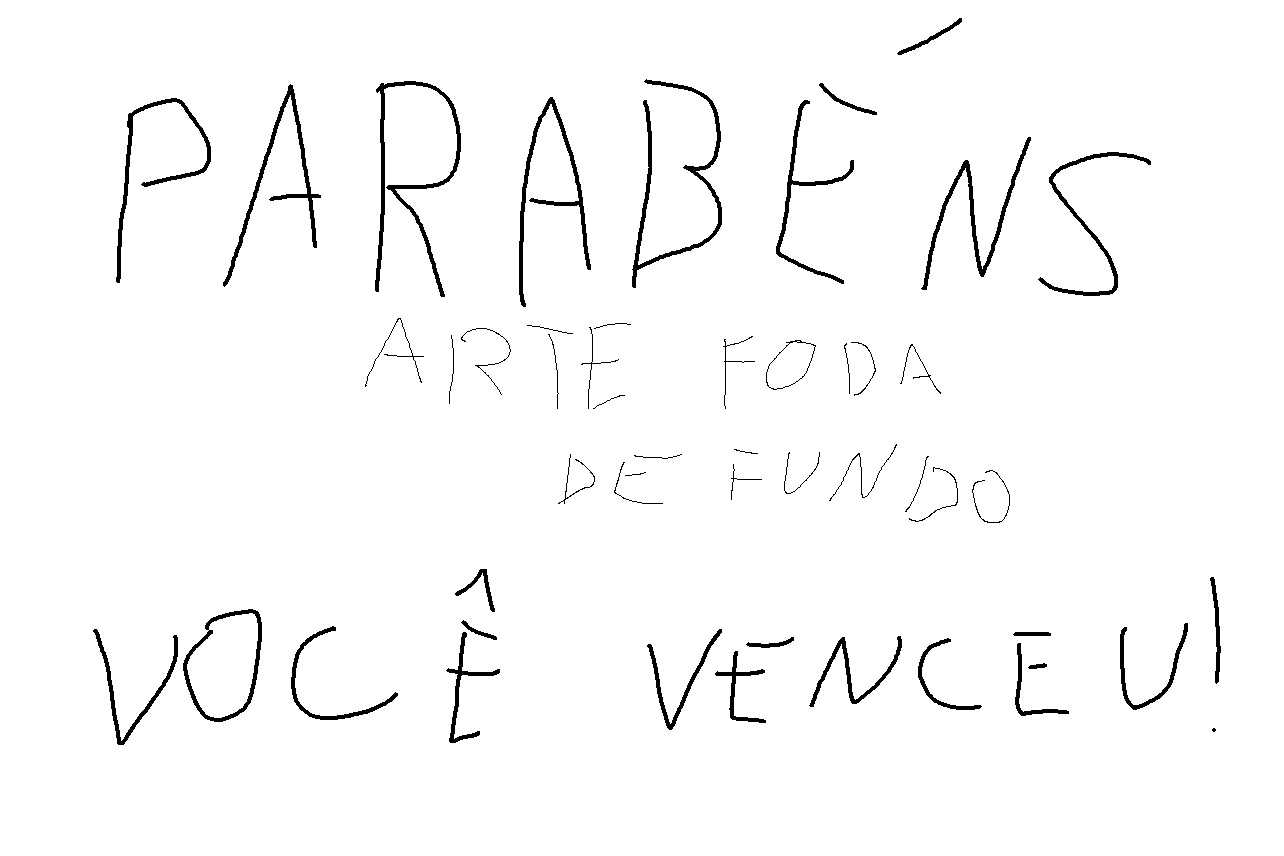 PARABÉNS
ARTE FODA
DE FUNDO
VOCÊ VENCEU!